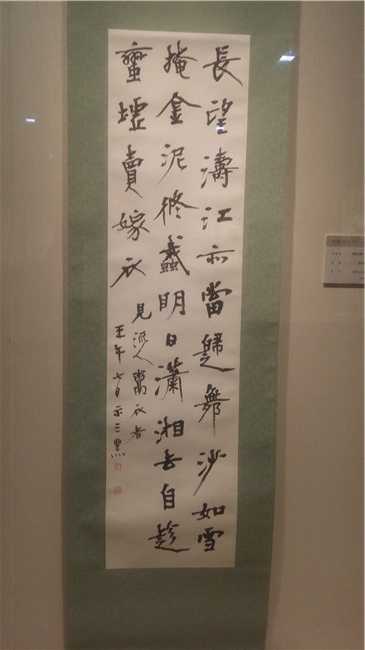 長望濤江亦當歸舞沙如雪
掩金泥修明日瀟湘去自趁
蠻墟賣嫁衣
見流人鬻衣者
壬午七月